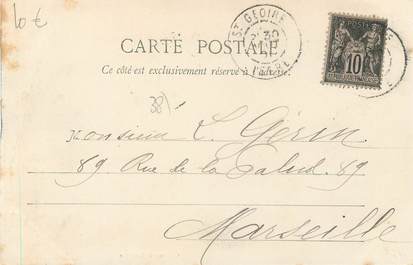 10€
ST GEOIRE
30
ISERE
10
CARTE POSTALE
Ce côté est exclusivement réservé à l'adresse.
38
Monsieur L. Gérin
89 Rue de la Palud. 89
Marseille